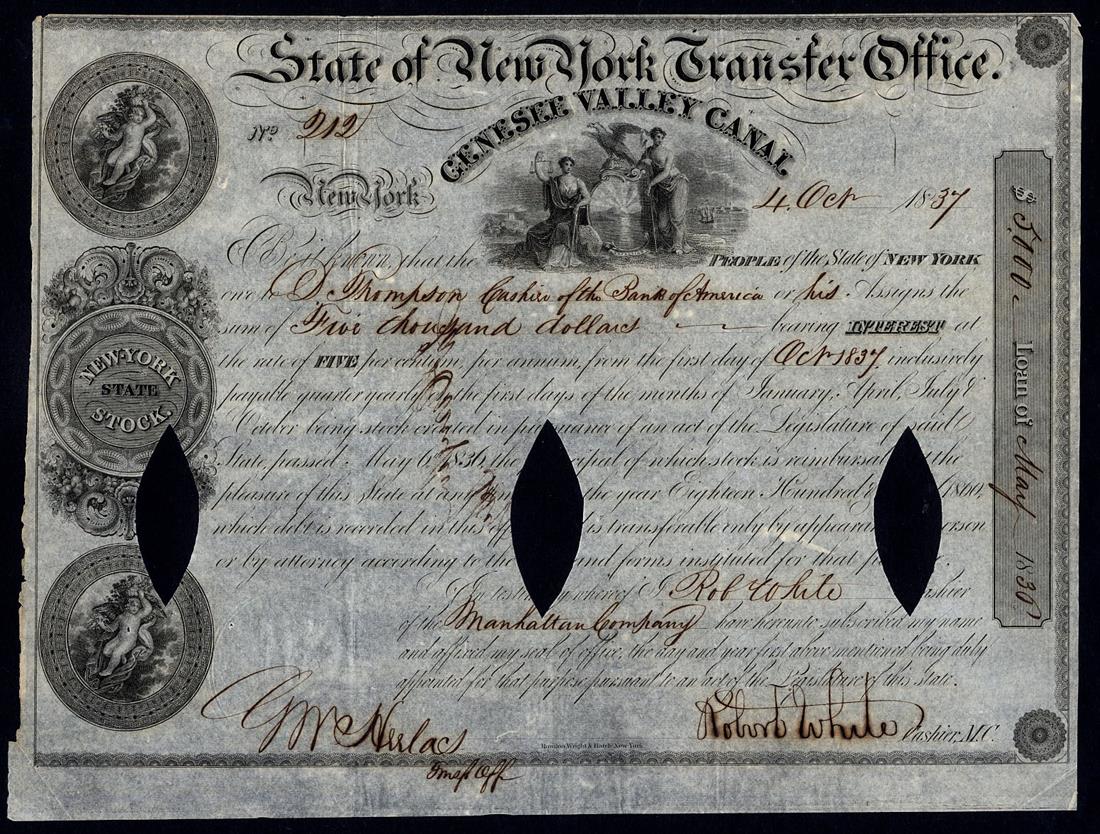 State of New York Transfer Office.
GENESEE VALLEY CANAL
No. 212
New York 4. Oct 1837
Be it known that the PEOPLE of the State of NEW YORK
owe to D Thompson Cashier of the Bank of America or his Assigns the
sum of Five thousand dollars bearing INTEREST at
the rate of FIVE per centum, per annum, from the first day of Oct 1837, inclusively
payable quarter yearly on the first days of the months of January, April, July &
October being stock created in pursuance of an act of the Legislature of said
State, passed May 6, 1836 the principal of which stock is reimbursa at the
pleasure of this State at any the year Eighteen Hundred & 1860,
which debt is recorded in this of is transferable only by appearan erson
or by attorney according to the and forms instituted for that p
In testimony whereof I Rob White ashier
of the Manhattan Company have hereunto subscribed my name
and affixed my seal of office, the day and year first above mentioned being duly
appointed for that purpose pursuant to an act of the Legislature of this state.
Robert White Cashier, M.C.
Rawdon Wright & Hatch New York
NEW-YORK
STATE
STOCK.
$ 5,000 Loan of May 1836